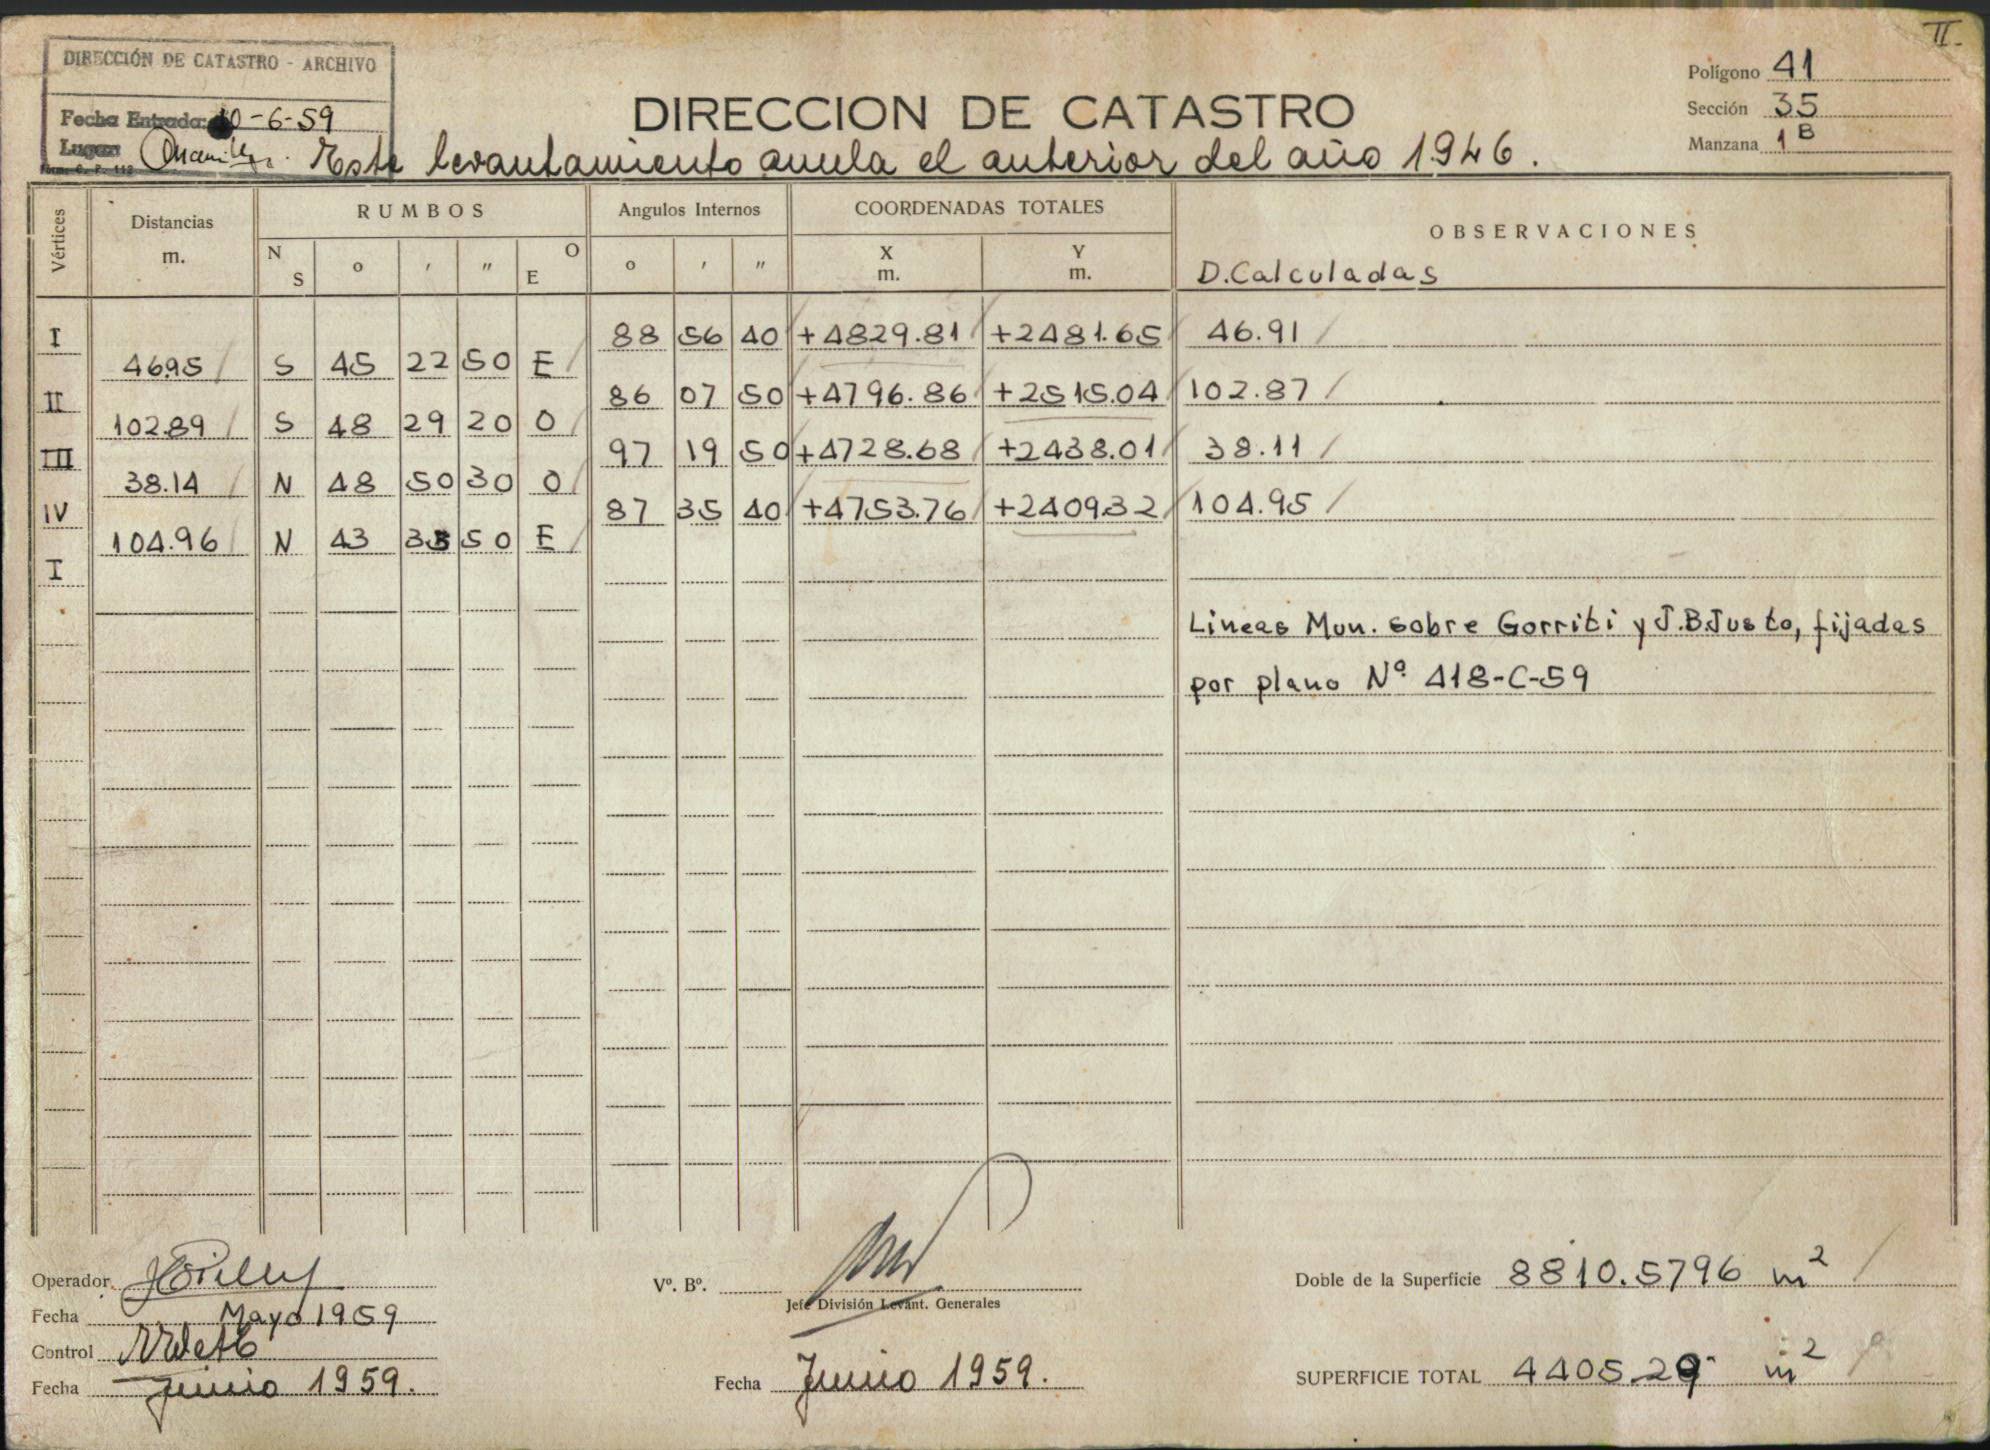 II.
DIRECCIÓN DE CATASTRO - ARCHIVO
Fecha Entrada: 10-6-59
Lugar:
Form. C. P. 112
DIRECCION DE CATASTRO
Polígono 41
Sección 35
Manzana 1B
Este levantamiento anula el anterior del año 1.946.
Vértices Distancias m. RUMBOS Angulos Internos COORDENADAS TOTALES OBSERVACIONES
N S ° ' " E O ° ' " X m. Y m. D. Calculadas
I 88 56 40 +4829.81 +2481.65 46.91
46.95 S 45 22 50 E
II 86 07 50 +4796.86 +2515.04 102.87
102.89 S 48 29 20 O
III 97 19 50 +4728.68 +2438.01 38.11
38.14 N 48 50 30 O
IV 87 35 40 +4753.76 +2409.32 104.95
104.96 N 43 33 50 E
I
Lineas Mun. sobre Gorriti y J.B.Justo, fijadas
por plano Nº 418-C-59
Operador
Fecha Mayo 1959
Control
Fecha Junio 1959.
Vº. Bº.
Jefe División Levant. Generales
Fecha Junio 1959.
Doble de la Superficie 8810.5796 m2
SUPERFICIE TOTAL 4405.29 m2